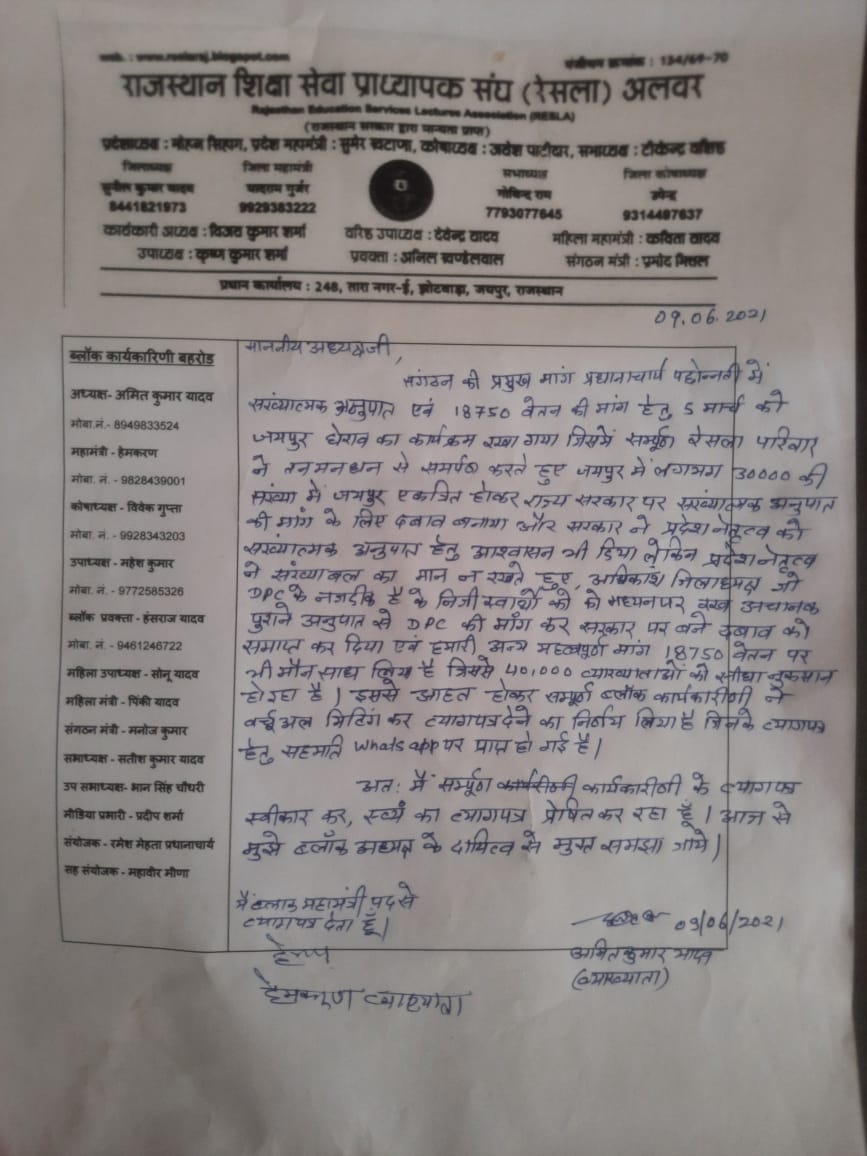 web. : www.reslaraj.blogspot.com
पंजीयन क्रमांक : 134/69-70
राजस्थान शिक्षा सेवा प्राध्यापक संघ (रेसला) अलवर
Rajasthan Education Services Lectures Association (RESLA)
(राजस्थान सरकार द्वारा मान्यता प्राप्त)
प्रदेशाध्यक्ष : मोहन सिहाग, प्रदेश महामंत्री : सुमेर खटाणा, कोषाध्यक्ष : अवेश पाटीदार, सभाध्यक्ष : टीकेन्द्र वशिष्ठ
जिलाध्यक्ष
सुनील कुमार यादव
8441821973
जिला महामंत्री
यादराम गुर्जर
9929383222
सभाध्यक्ष
गोबिन्द राम
7793077645
जिला कोषाध्यक्ष
9314497637
कार्यकारी अध्यक्ष : विजय कुमार शर्मा
वरिष्ठ उपाध्यक्ष : देवेन्द्र यादव
महिला महामंत्री : कविता यादव
उपाध्यक्ष : कृष्ण कुमार शर्मा
प्रवक्ता : अनिल खण्डेलवाल
संगठन मंत्री : प्रमोद मित्तल
प्रधान कार्यालय : 248, तारा नगर-ई, झोटवाड़ा, जयपुर, राजस्थान
09.06.2021
ब्लॉक कार्यकारिणी बहरोड
अध्यक्ष- अमित कुमार यादव
मोबा.नं.- 8949833524
महामंत्री - हेमकरण
मोबा. नं.- 9828439001
कोषाध्यक्ष - विवेक गुप्ता
मोबा. नं. -9928343203
उपाध्यक्ष - महेश कुमार
मोबा. नं.- 9772585326
ब्लॉक प्रवक्ता - हंसराज यादव
मोबा. नं.- 9461246722
महिला उपाध्यक्ष - सोनू यादव
महिला मंत्री - पिंकी यादव
संगठन मंत्री - मनोज कुमार
सभाध्यक्ष - सतीश कुमार यादव
उप सभाध्यक्ष- भान सिंह चौधरी
मीडिया प्रभारी - प्रदीप शर्मा
संयोजक - रमेश मेहता प्रधानाचार्य
सह संयोजक - महावीर मीणा
माननीय अध्यक्षजी,
संगठन की प्रमुख मांग प्रधानाचार्य पदोन्नती में
संख्यात्मक अनुपात एवं 18750 वेतन की मांग हेतु 5 मार्च को
जयपुर घेराव का कार्यक्रम रखा गया जिसमें सम्पूर्ण रेसला परिवार
ने तनमनधन से समर्पण करते हुए जयपुर में लगभग 30000 की
संख्या में जयपुर एकत्रित होकर राज्य सरकार पर संख्यात्मक अनुपात
की मांग के लिए दबाव बनाया और सरकार ने प्रदेश नेतृत्व को
संख्यात्मक अनुपात हेतु आश्वासन भी दिया लेकिन प्रदेशनेतृत्व
ने संख्याबल का मान न रखते हुए, अधिकांश जिलाध्यक्ष जो
DPC के नजदीक है के निजी स्वार्थो को को मध्यनपर रख अचानक
पुराने अनुपात से DPC की माँग कर सरकार पर बने दबाव को
समाप्त कर दिया एवं हमारी अन्य महत्वपूर्ण मांग 18750 वेतन पर
भी मौन साध लिया है जिससे 40,000 व्याख्याताओं को सीधा नुकसान
हो रहा है। इससे आहत होकर सम्पूर्ण ब्लॉक कार्यकारीणी ने
वर्चुअल मिटिंग कर त्यागपत्र देने का निर्णय लिया है जिनके त्यागपत्र
हेतु सहमति Whatsapp पर प्राप्त हो गई है।
अत: मैं सम्पूर्ण कार्यकारीणी कार्यकारीणी के त्यागपत्र
स्वीकार कर, स्वयं का त्यागपत्र प्रेषित कर रहा हूँ। आज से
मुझे ब्लॉक अध्यक्ष के दायित्व से मुक्त समझा जाये।
मैं ब्लाक महामंत्री पद से
त्यागपत्र देता हूँ।
हेमकरण व्याख्याता
09/06/2021
अमित कुमार यादव
(व्याख्याता)